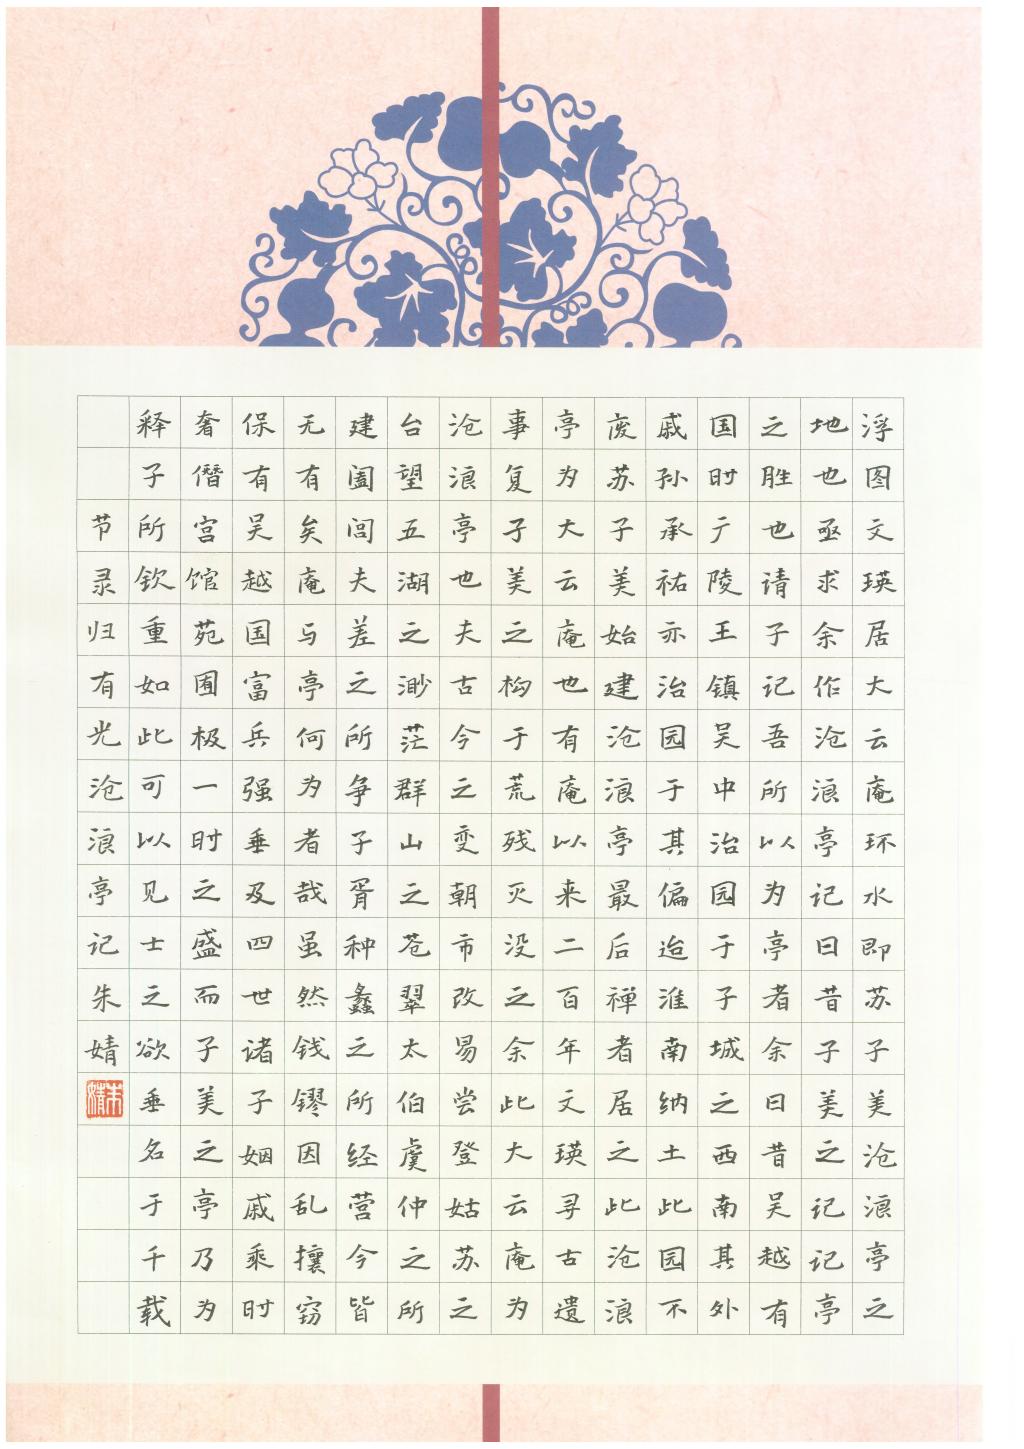 浮图文瑛居大云庵环水即苏子美沧浪亭之
地也亟求余作沧浪亭记曰昔子美之记记亭
之胜也请子记吾所以为亭者余曰昔吴越有
国时广陵王镇吴中治园于子城之西南其外
戚孙承祐亦治园于其偏迨淮南纳土此园不
废苏子美始建沧浪亭最后禅者居之此沧浪
亭为大云庵也有庵以来二百年文瑛寻古遗
事复子美之构于荒残灭没之余此大云庵为
沧浪亭也夫古今之变朝市改易尝登姑苏之
台望五湖之渺茫群山之苍翠太伯虞仲之所
建阖闾夫差之所争子胥种蠡之所经营今皆
无有矣庵与亭何为者哉虽然钱镠因乱攘窃
保有吴越国富兵强垂及四世诸子姻戚乘时
奢僭宫馆苑囿极一时之盛而子美之亭乃为
释子所钦重如此可以见士之欲垂名于千载
节录归有光沧浪亭记朱婧
朱婧